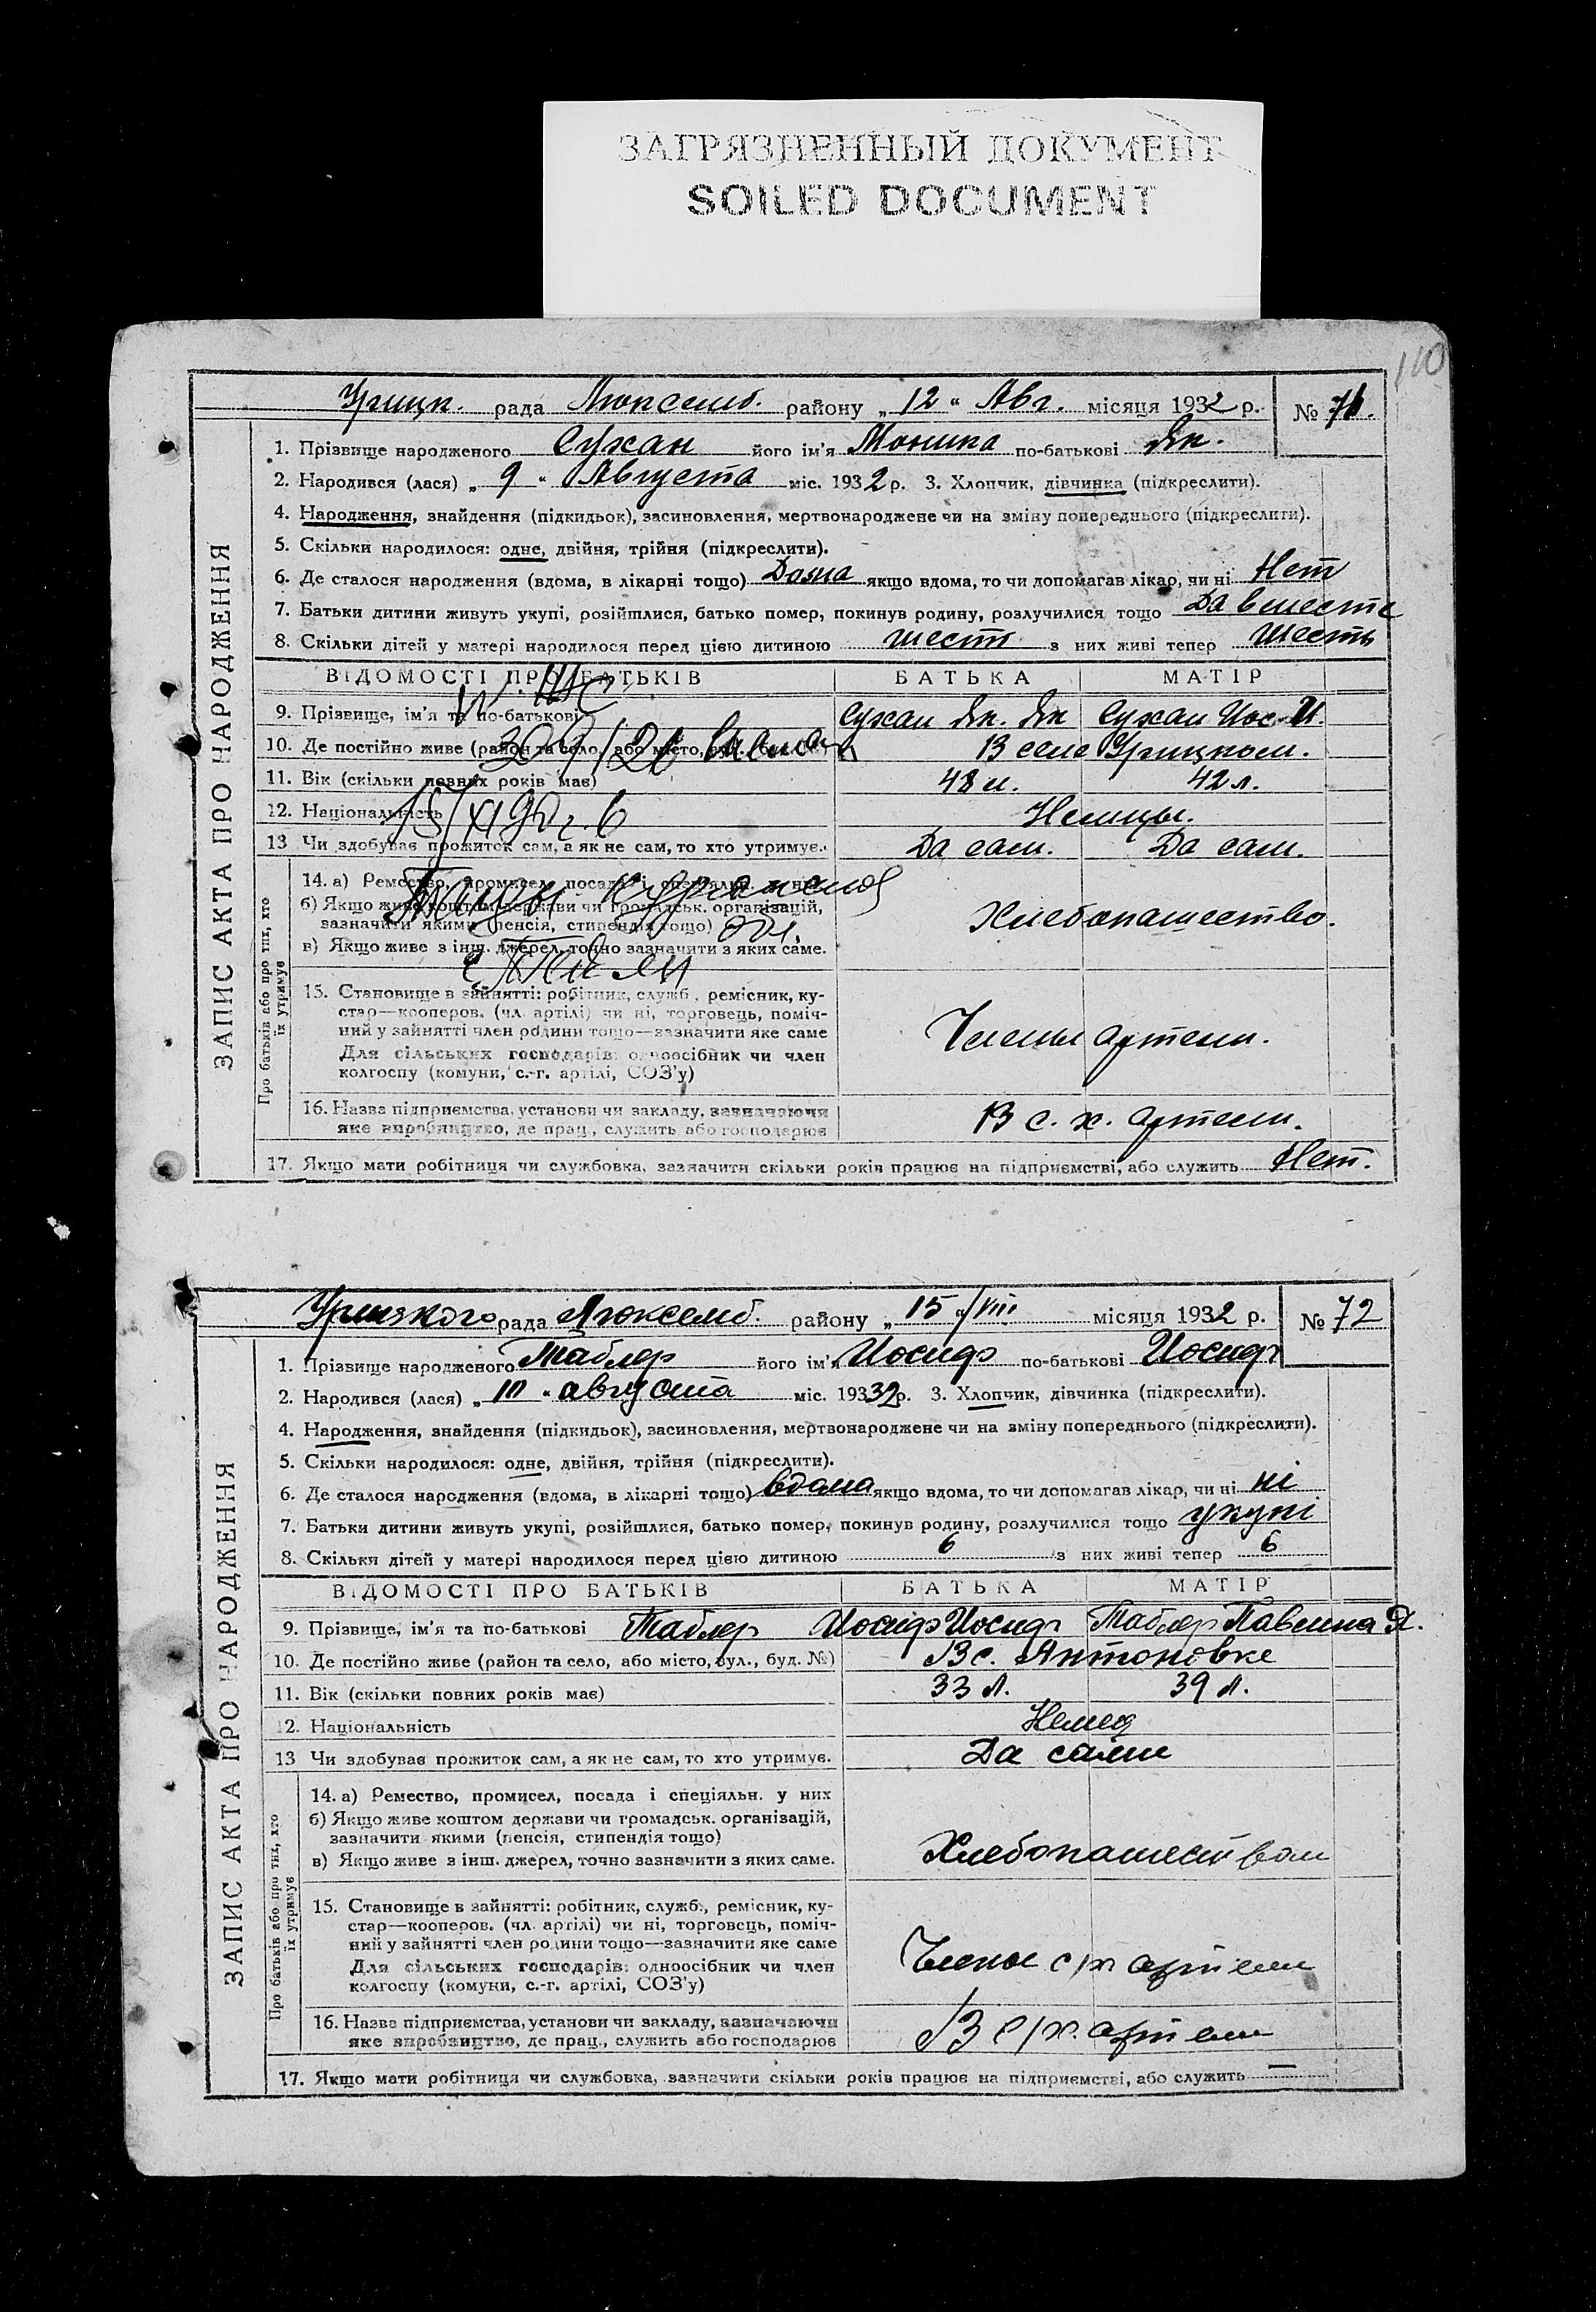 ЗАГРЯЗНЕННЫЙ ДОКУМЕНТ
SOILED DOCUMENT
110
Урицк. рада Люксемб. району „12“ Авг. місяця 1932 р. № 71.
ЗАПИС АКТА ПРО НАРОДЖЕННЯ
1. Прізвище народженого Сухан його ім'я Моника по-батькові Як.
2. Народився (лася) „9“ Августа міс. 1932 р. 3. Хлопчик, дівчинка (підкреслити).
4. Народження, знайдення (підкидьок), засиновлення, мертвонароджене чи на зміну попереднього (підкреслити).
5. Скільки народилося: одне, двійня, трійня (підкреслити).
6. Де сталося народження (вдома, в лікарні тощо) Дома якщо вдома, то чи допомагав лікар, чи ні Нет
7. Батьки дитини живуть укупі, розійшлися, батько помер, покинув родину, розлучилися тощо Да вместе
8. Скільки дітей у матері народилося перед цією дитиною шест з них живі тепер Шесть
ВІДОМОСТІ ПРО БАТЬКІВ БАТЬКА МАТІР
9. Прізвище, ім'я та по-батькові Сухан Як. Як Сухан Иос. И.
10. Де постійно живе (район та село, або місто, В селе Урицком.
11. Вік (скільки повних років має) 48 л. 42 л.
12. Національність Немцы.
13 Чи здобуває прожиток сам, а як не сам, то хто утримує. Да сам. Да сам.
Про батьків або про тих, хто їх утримує
14. а) Ремество, промисел, посада і спеціяльн. у них
б) Якщо живе коштом держави чи громадськ. організацій,
зазначити якими (пенсія, стипендія тощо) Хлебопашество.
в) Якщо живе з інш. джерел, точно зазначити з яких саме.
15. Становище в зайнятті: робітник, служб., ремісник, ку-
стар—кооперов. (чл. артілі) чи ні, торговець, поміч-
ний у зайнятті член родини тощо—зазначити яке саме Члены артели.
Для сільських господарів: одноосібник чи член
колгоспу (комуни, с.-г. артілі, СОЗ'у)
16. Назва підприємства, установи чи закладу, зазначаючи
яке виробництво, де прац., служить або господарює В с. х. артели.
17. Якщо мати робітниця чи службовка, зазначити скільки років працює на підприємстві, або служить Нет.
Урицкого рада Люксемб. району „15“/VIII місяця 1932 р. № 72
ЗАПИС АКТА ПРО НАРОДЖЕННЯ
1. Прізвище народженого Таблер його ім'я Иосиф по-батькові Иосиф
2. Народився (лася) „10“ августа міс. 1932 р. 3. Хлопчик, дівчинка (підкреслити).
4. Народження, знайдення (підкидьок), засиновлення, мертвонароджене чи на зміну попереднього (підкреслити).
5. Скільки народилося: одне, двійня, трійня (підкреслити).
6. Де сталося народження (вдома, в лікарні тощо) вдома якщо вдома, то чи допомагав лікар, чи ні ні
7. Батьки дитини живуть укупі, розійшлися, батько помер, покинув родину, розлучилися тощо укупі
8. Скільки дітей у матері народилося перед цією дитиною 6 з них живі тепер 6
ВІДОМОСТІ ПРО БАТЬКІВ БАТЬКА МАТІР
9. Прізвище, ім'я та по-батькові Таблер Иосиф Иосиф Таблер Павлина Я.
10. Де постійно живе (район та село, або місто, вул., буд. №) В с. Антоновке
11. Вік (скільки повних років має) 33 л. 39 л.
12. Національність Немец
13 Чи здобуває прожиток сам, а як не сам, то хто утримує. Да сами
Про батьків або про тих, хто їх утримує
14. а) Ремество, промисел, посада і спеціяльн. у них
б) Якщо живе коштом держави чи громадськ. організацій,
зазначити якими (пенсія, стипендія тощо) Хлебопашеством
в) Якщо живе з інш. джерел, точно зазначити з яких саме.
15. Становище в зайнятті: робітник, служб., ремісник, ку-
стар—кооперов. (чл. артілі) чи ні, торговець, поміч-
ний у зайнятті член родини тощо—зазначити яке саме Члены с/х артели
Для сільських господарів: одноосібник чи член
колгоспу (комуни, с.-г. артілі, СОЗ'у)
16. Назва підприємства, установи чи закладу, зазначаючи
яке виробництво, де прац., служить або господарює В с/х. артели
17. Якщо мати робітниця чи службовка, зазначити скільки років працює на підприємстві, або служить —